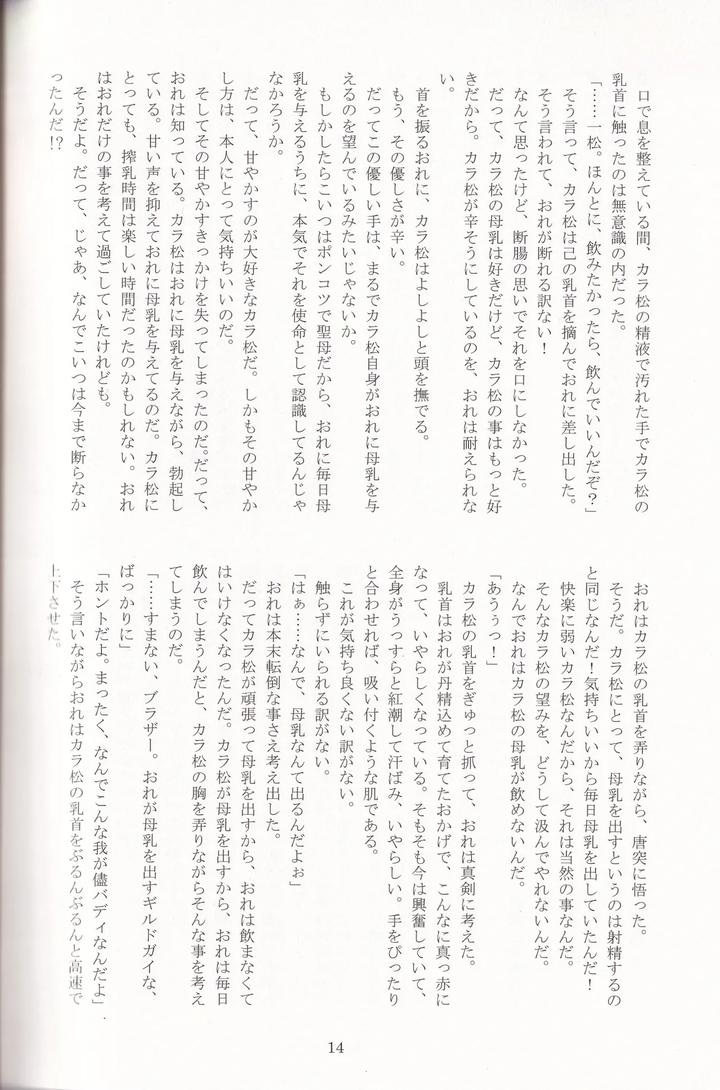 口で息を整えている間、カラ松の精液で汚れた手でカラ松の
乳首に触ったのは無意識の内だった。
「……一松。ほんとに、飲みたかったら、飲んでいいんだぞ？」
そう言って、カラ松は己の乳首を摘んでおれに差し出した。
そう言われて、おれが断れる訳ない！
なんて思ったけど、断腸の思いでそれを口にしなかった。
だって、カラ松の母乳は好きだけど、カラ松の事はもっと好
きだから。カラ松が辛そうにしているのを、おれは耐えられな
い。
首を振るおれに、カラ松はよしよしと頭を撫でる。
もう、その優しさが辛い。
だってこの優しい手は、まるでカラ松自身がおれに母乳を与
えるのを望んでいるみたいじゃないか。
もしかしたらこいつはポンコツで聖母だから、おれに毎日母
乳を与えるうちに、本気でそれを使命として認識してるんじゃ
なかろうか。
だって、甘やかすのが大好きなカラ松だ。しかもその甘やか
し方は、本人にとって気持ちいいのだ。
そしてその甘やかすきっかけを失ってしまったのだ。だって、
おれは知っている。カラ松はおれに母乳を与えながら、勃起し
ている。甘い声を抑えておれに母乳を与えてるのだ。カラ松に
とっても、搾乳時間は楽しい時間だったのかもしれない。おれ
はおれだけの事を考えて過ごしていたけれども。
そうだよ。だって、じゃあ、なんでこいつは今まで断らなか
ったんだ!?
おれはカラ松の乳首を弄りながら、唐突に悟った。
そうだ。カラ松にとって、母乳を出すというのは射精するの
と同じなんだ！気持ちいいから毎日母乳を出していたんだ！
快楽に弱いカラ松なんだから、それは当然の事なんだ。
そんなカラ松の望みを、どうして汲んでやれないんだ。
なんでおれはカラ松の母乳が飲めないんだ。
「あうぅっ！」
カラ松の乳首をぎゅっと抓って、おれは真剣に考えた。
乳首はおれが丹精込めて育てたおかげで、こんなに真っ赤に
なって、いやらしくなっている。そもそも今は興奮していて、
全身がうっすらと紅潮して汗ばみ、いやらしい。手をぴったり
と合わせれば、吸い付くような肌である。
これが気持ち良くない訳がない。
触らずにいられる訳がない。
「はぁ……なんで、母乳なんて出るんだよぉ」
おれは本末転倒な事さえ考え出した。
だってカラ松が頑張って母乳を出すから、おれは飲まなくて
はいけなくなったんだ。カラ松が母乳を出すから、おれは毎日
飲んでしまうんだと、カラ松の胸を弄りながらそんな事を考え
てしまうのだ。
「……すまない、ブラザー。おれが母乳を出すギルドガイな、
ばっかりに」
「ホントだよ。まったく、なんでこんな我が儘バディなんだよ」
そう言いながらおれはカラ松の乳首をぶるんぶるんと高速で
上下させた。
14